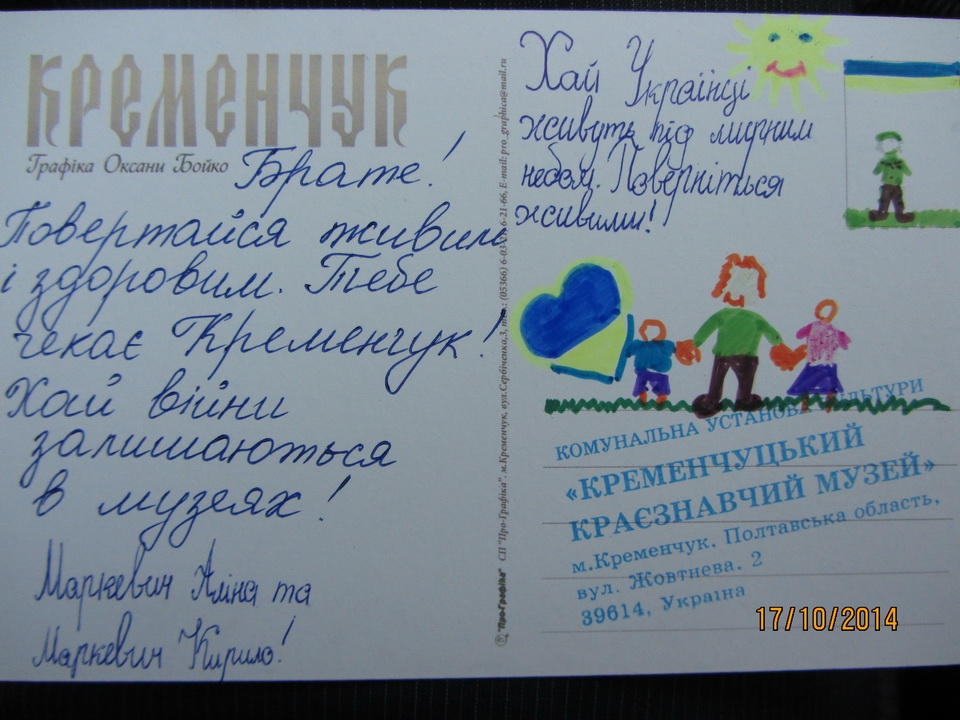 КРЕМЕНЧУК
Графіка Оксани Бойко
Брате!
Повертайся живим
і здоровим. Тебе
чекає Кременчук!
Хай війни
залишаються
в музеях!
Маркевич Аліна та
Маркевич Кирило!
СП "Про-Графіка". м.Кременчук, вул.Сербіченка,3, тел.: (05366) 6-03-01, 6-21-66, E-mail: pro_graphica@mail.ru
Хай Українці
живуть під мирним
небом. Поверніться
живими!
КОМУНАЛЬНА УСТАНОВА КУЛЬТУРИ
«КРЕМЕНЧУЦЬКИЙ
КРАЄЗНАВЧИЙ МУЗЕЙ»
м.Кременчук. Полтавська область,
вул. Жовтнева. 2
39614, Україна
17/10/2014